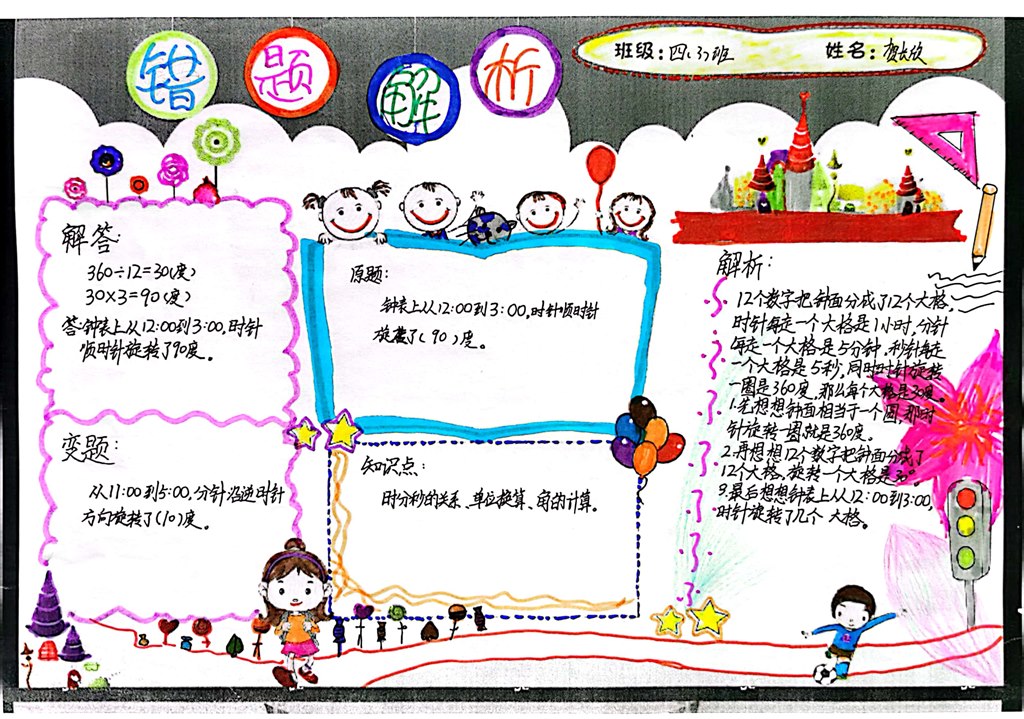 错题解析
班级：四、(3)班 姓名：
解答：
360÷12=30(度)
30×3=90(度)
答：钟表上从12:00到3:00，时针
顺时针旋转了90度。
原题：
钟表上从12:00到3:00，时针顺时针
旋转了(90)度。
解析：
12个数字把钟面分成了12个大格，
时针每走一个大格是1小时，分针
每走一个大格是5分钟，秒针每走
一个大格是5秒，同时时针旋转
一圈是360度，那么每个大格是30度。
1.先想想钟面相当于一个圆，那时
针旋转一圈就是360度。
2.再想想12个数字把钟面分成了
12个大格，旋转一个大格是30°。
3.最后想想钟表上从12:00到3:00，
时针旋转了几个大格。
变题：
从11:00到5:00，分针沿逆时针
方向旋转了(10)度。
知识点：
时分秒的关系、单位换算、角的计算。